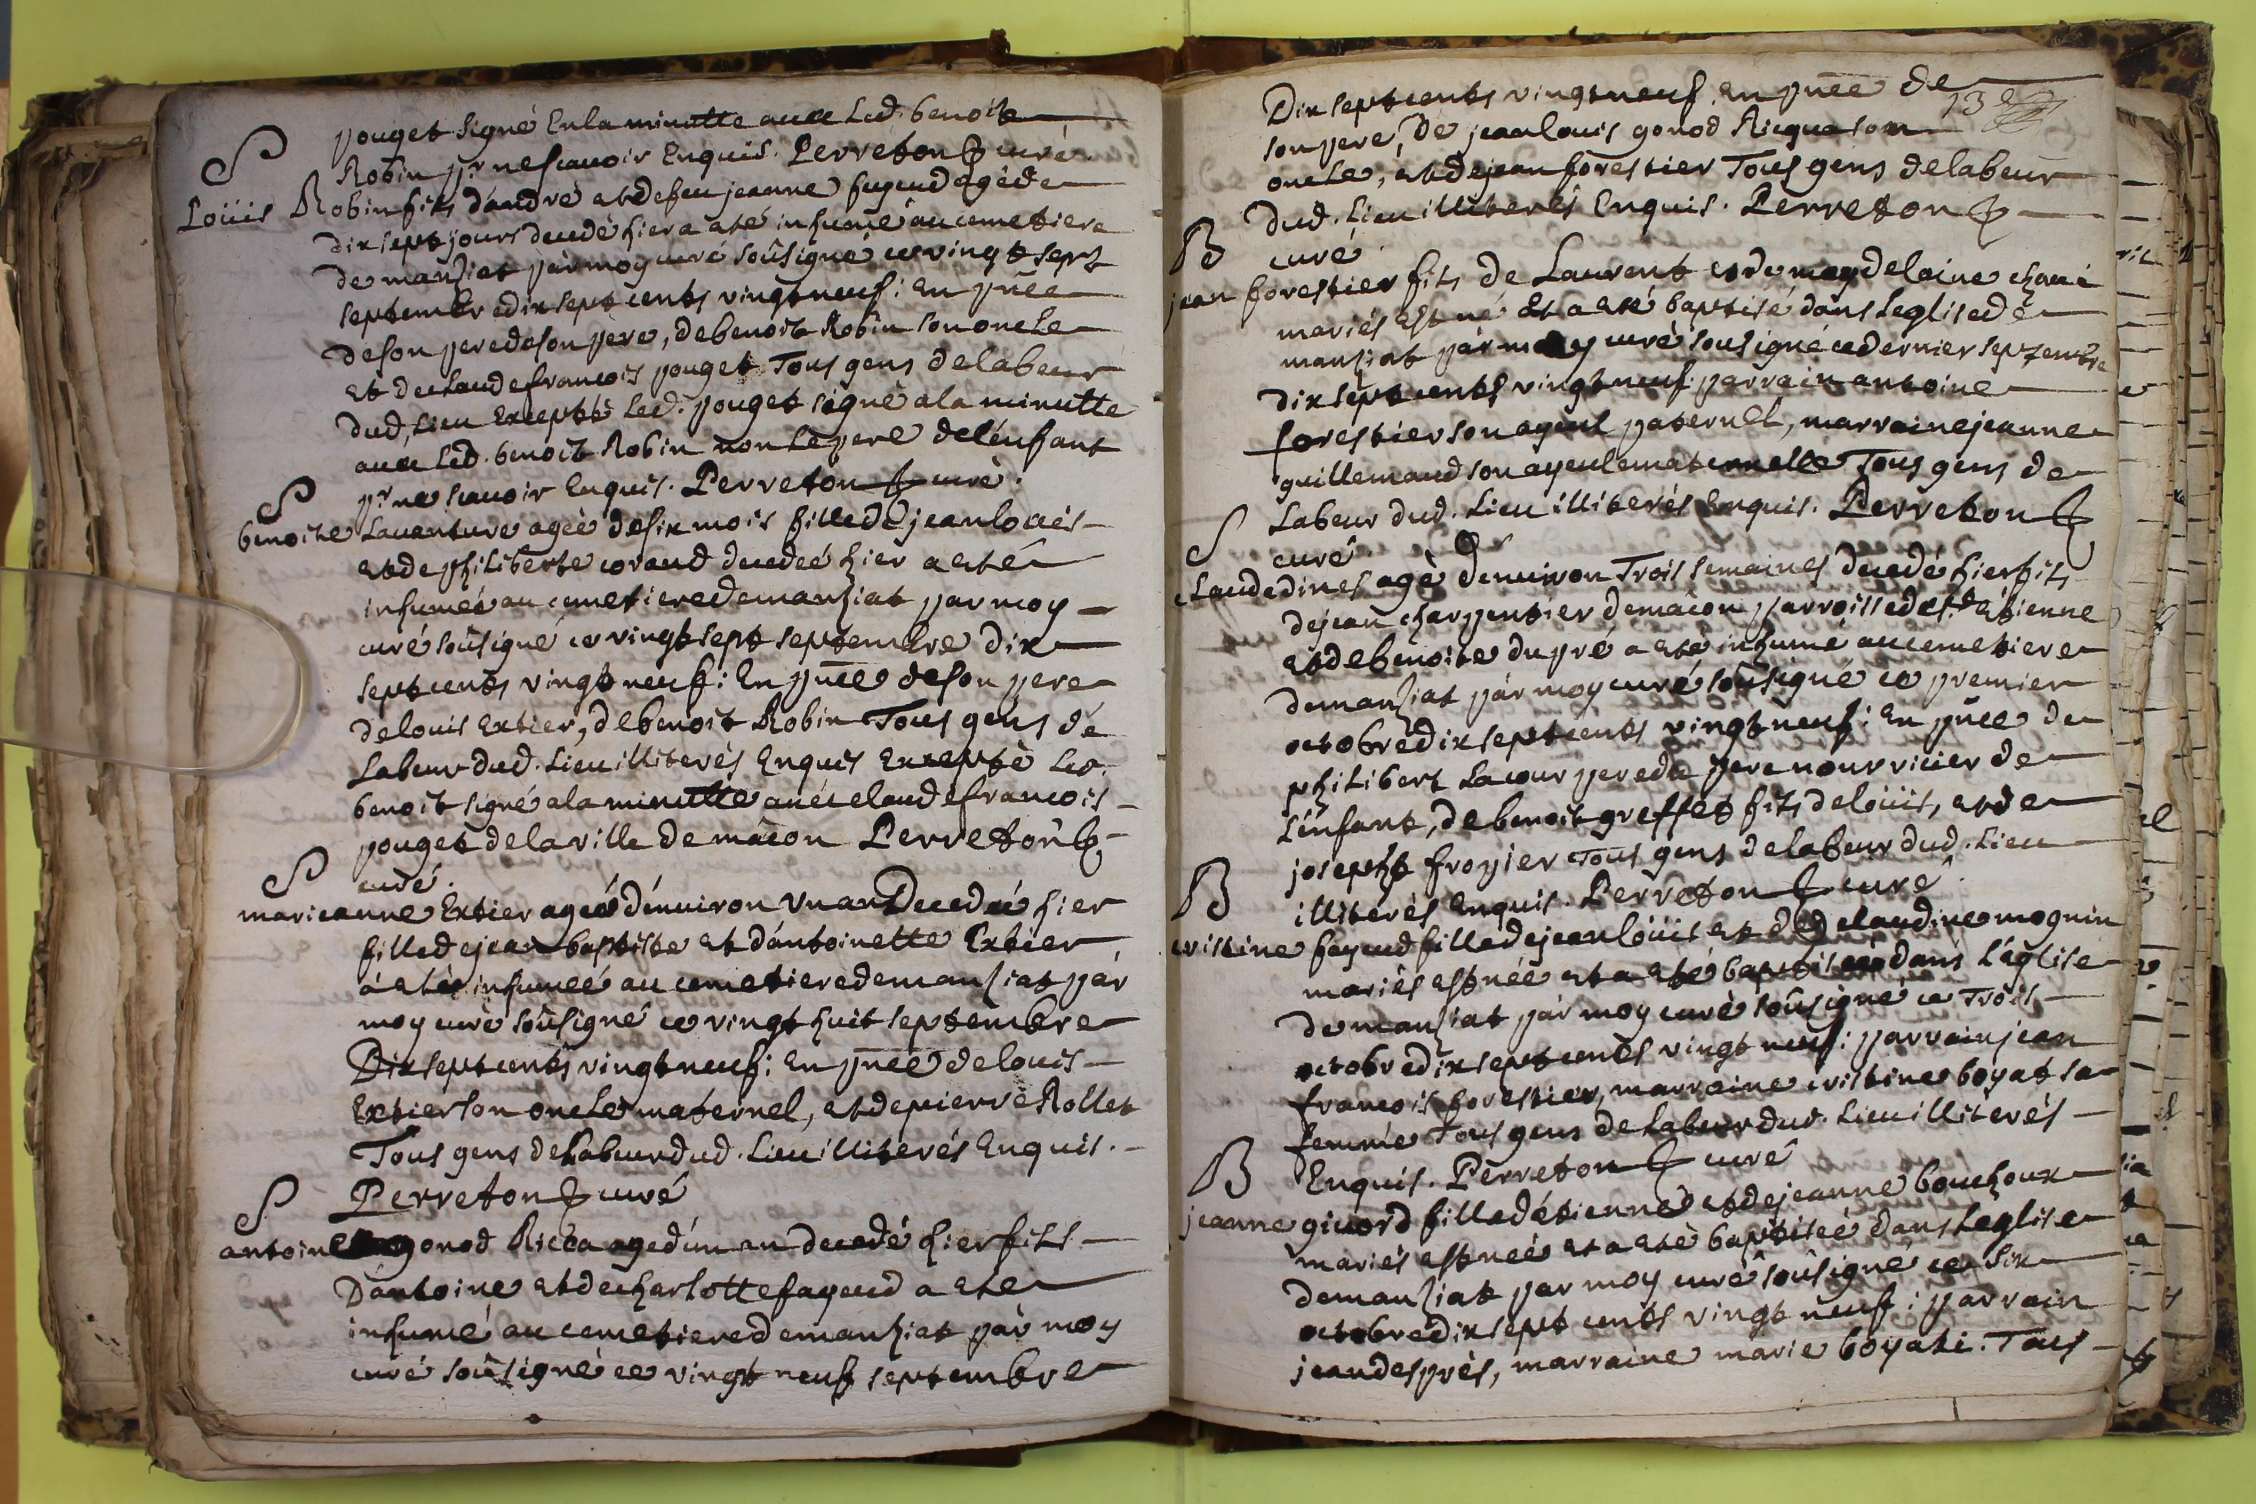 pouget signé En la minutte avec Led. benoit
Robin pr ne scavoir Enquis. Perreton curé
S
Loüis Robin fils d'andré et de feu jeanne fayeud agé de
dix sept jours decedé hier a eté inhumé au cemetiere
de manziat par moy curé soûsigné ce vingt sept
septembre dix sept cents vingt neuf: En pñce
de son pere de son pere, de benoit Robin son oncle
Et de claude francois pouget Tous gens de labeur
dud. Lieu Excepté Led. pouget signé a la minutte
avec Led. benoit Robin non le pere de l'enfant
pr ne scavoir Enquis. Perreton curé.
S
benoite Lavanture agée de six mois fille de jean loüis
et de philiberte corand decedeé hier a eté
inhumeé au cemetiere de manziat par moy
curé soûsigné ce vingt sept septembre dix
sept cents vingt neuf: En pñce de son pere
de louis Extier, de benoit Robin Tous gens de
Labeur dud. Lieu illiterés Enquis Excepté Led.
benoit signé a la minutte avec claude francois
pouget de la ville de mâcon Perreton
curé.
S
marieanne Extier ageé d'environ un an Decedeé hier
fille de jean baptiste et d'antoinette Extier
a eté inhumeé au cemetiere de manziat par
moy curé soûsigné ce vingt huit septembre
Dix sept cents vingt neuf: En pñce de louis
Extier son oncle maternel, et de pierre Rollet
Tous gens de Labeur dud. Lieu illiterés Enquis.
Perreton curé
S
antoine gonod Ricca agé d'un an decedé hier fils
D'antoine et de charlotte fayeud a eté
inhumé au cemetiere de manziat par moy
curé soûsigné ce vingt neuf septembre
13e
Dix sept cents vingt neuf. En pñce de
son pere, de jean louis gonod Ricqua son
oncle, et de jean forestier Tous gens de labeur
dud. Lieu illiterés Enquis. Perreton
curé
B
jean forestier fils de Laurent et de magdelaine chané
mariés est né Et a eté baptisé dans Leglise de
manziat par moy curé soûsigné ce dernier septembre
dix sept cents vingt neuf: parrain antoine
forestier son ayeul paternel, marraine jeanne
guillemaud son ayeule maternelle Tous gens de
Labeur dud. Lieu illiterés Enquis. Perreton
curé
S
claude dines agé d'environ Trois semaines decedé hier fils
de jean charpentier de mâcon parroisse de st etienne
et de benoite dupré a eté inhumé au cemetiere
de manziat par moy curé soûsigné ce premier
octobre dix sept cents vingt neuf: En pñce de
philibert Lacour pere du pere nourricier de
L'enfant, de benoit greffet fils de loüis, et de
joseph froyier Tous gens de labeur dud. Lieu
illiterés Enquis. Perreton curé
B
cristine fayeud fille de jean loüis et de claudine mognin
mariés est née et a eté baptiseé dans L'église
de manziat par moy curé soûsigné ce Trois
octobre dix sept cents vingt neuf: parrain jean
francois forestier, marraine cristine boyat sa
femme Tous gens de Labeur dud. Lieu illiterés
Enquis. Perreton curé
B
jeanne givord fille d'étienne et de jeanne bouchoux
mariés est neé et a eté baptiseé dans Leglise
de manziat par moy curé soûsigné ce Six
octobre dix sept cents vingt neuf: parrain
jean després, marraine marie boyati. Tous